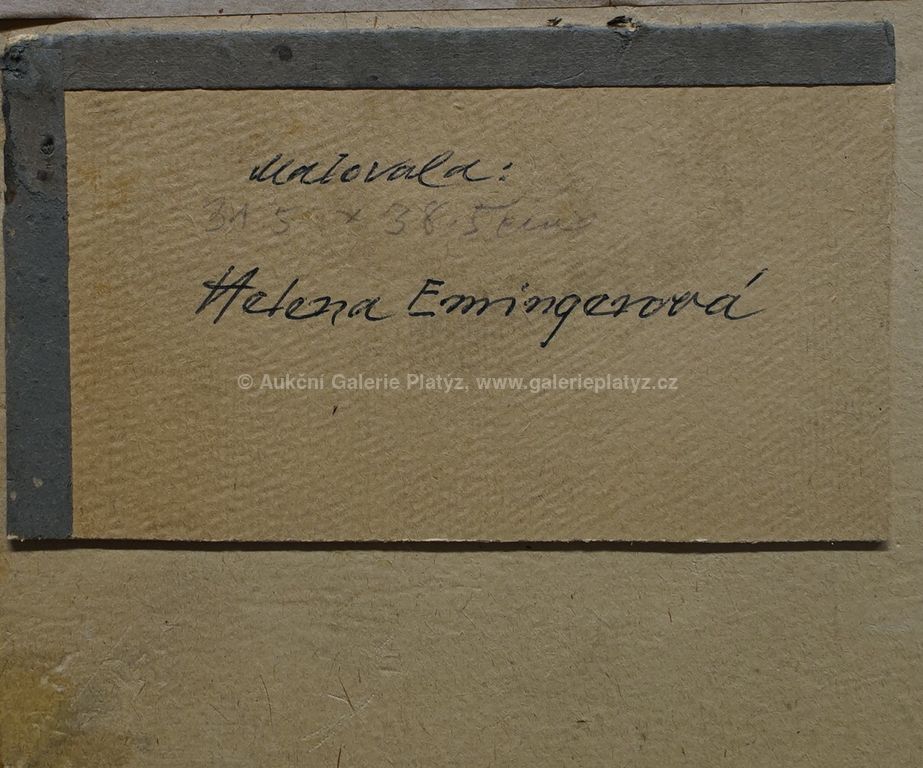 Malovala:
31 5 x 38.5 cm
Helena Emingerová
© Aukční Galerie Platýz, www.galerieplatyz.cz